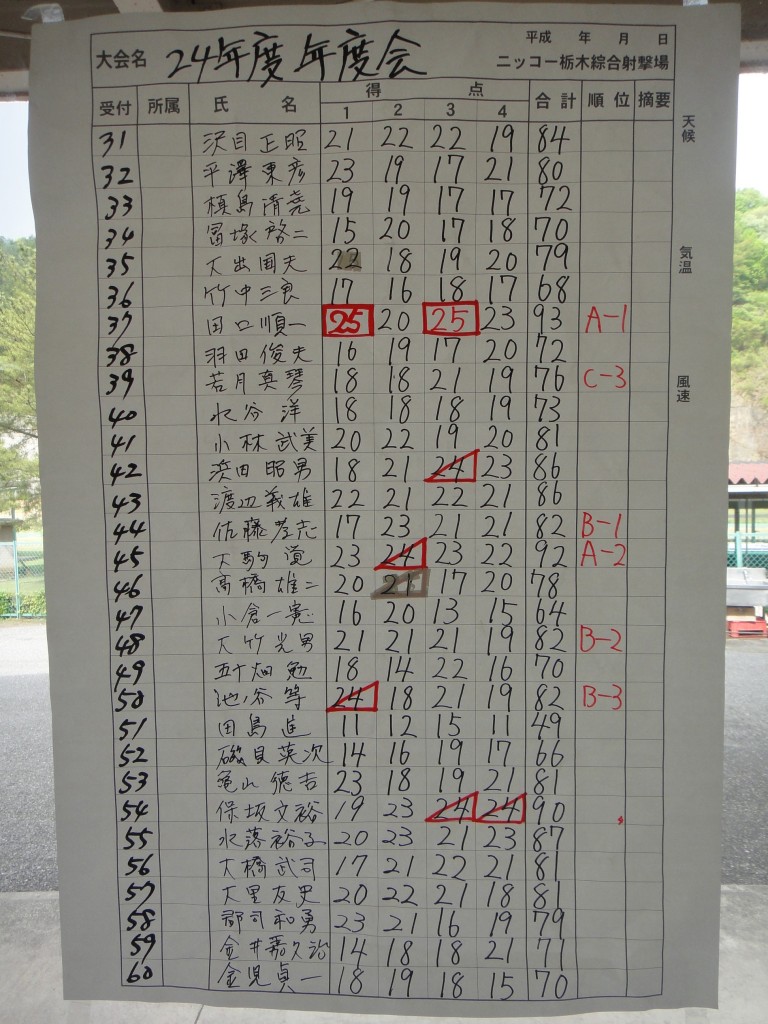 平成 年 月 日
大会名 24年度年度会 ニッコー栃木綜合射撃場
受付 所属 氏 名 得 点 合計 順位 摘要
1 2 3 4
天候
気温
風速
31 沢目正昭 21 22 22 19 84
32 平澤東彦 23 19 17 21 80
33 槙島清堯 19 19 17 17 72
34 冨塚啓二 15 20 17 18 70
35 大出国夫 22 18 19 20 79
36 竹中三良 17 16 18 17 68
37 田口順一 25 20 25 23 93 A-1
38 羽田俊夫 16 19 17 20 72
39 若月真琴 18 18 21 19 76 C-3
40 水谷洋 18 18 18 19 73
41 小林武美 20 22 19 20 81
42 浜田昭男 18 21 24 23 86
43 渡辺義雄 22 21 22 21 86
44 佐藤孝志 17 23 21 21 82 B-1
45 大駒 23 24 23 22 92 A-2
46 高橋雄二 20 21 17 20 78
47 小倉一憲 16 20 13 15 64
48 大竹光男 21 21 21 19 82 B-2
49 五十畑勉 18 14 22 16 70
50 池ノ谷等 24 18 21 19 82 B-3
51 田島進 11 12 15 11 49
52 磯貝英次 14 16 19 17 66
53 亀山德吉 23 18 19 21 81
54 保坂文裕 19 23 24 24 90
55 水落裕子 20 23 21 23 87
56 大橋武司 17 21 22 21 81
57 大里友史 20 22 21 18 81
58 郡司和勇 23 21 16 19 79
59 金井嘉久治 14 18 18 21 71
60 金児貞一 18 19 18 15 70